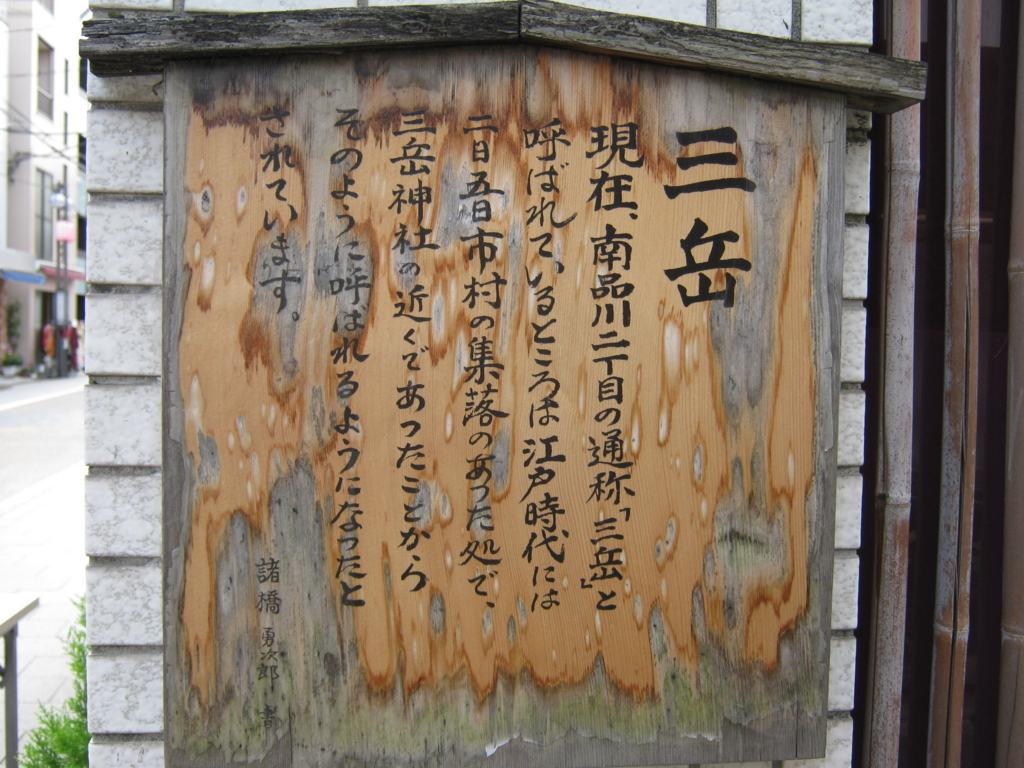 三岳
現在、南品川二丁目の通称「三岳」と
呼ばれているところは江戸時代には
二日五日市村の集落のあった処で、
三岳神社の近くであったことから
そのように呼ばれるようになったと
されています。
諸橋勇次郎 書